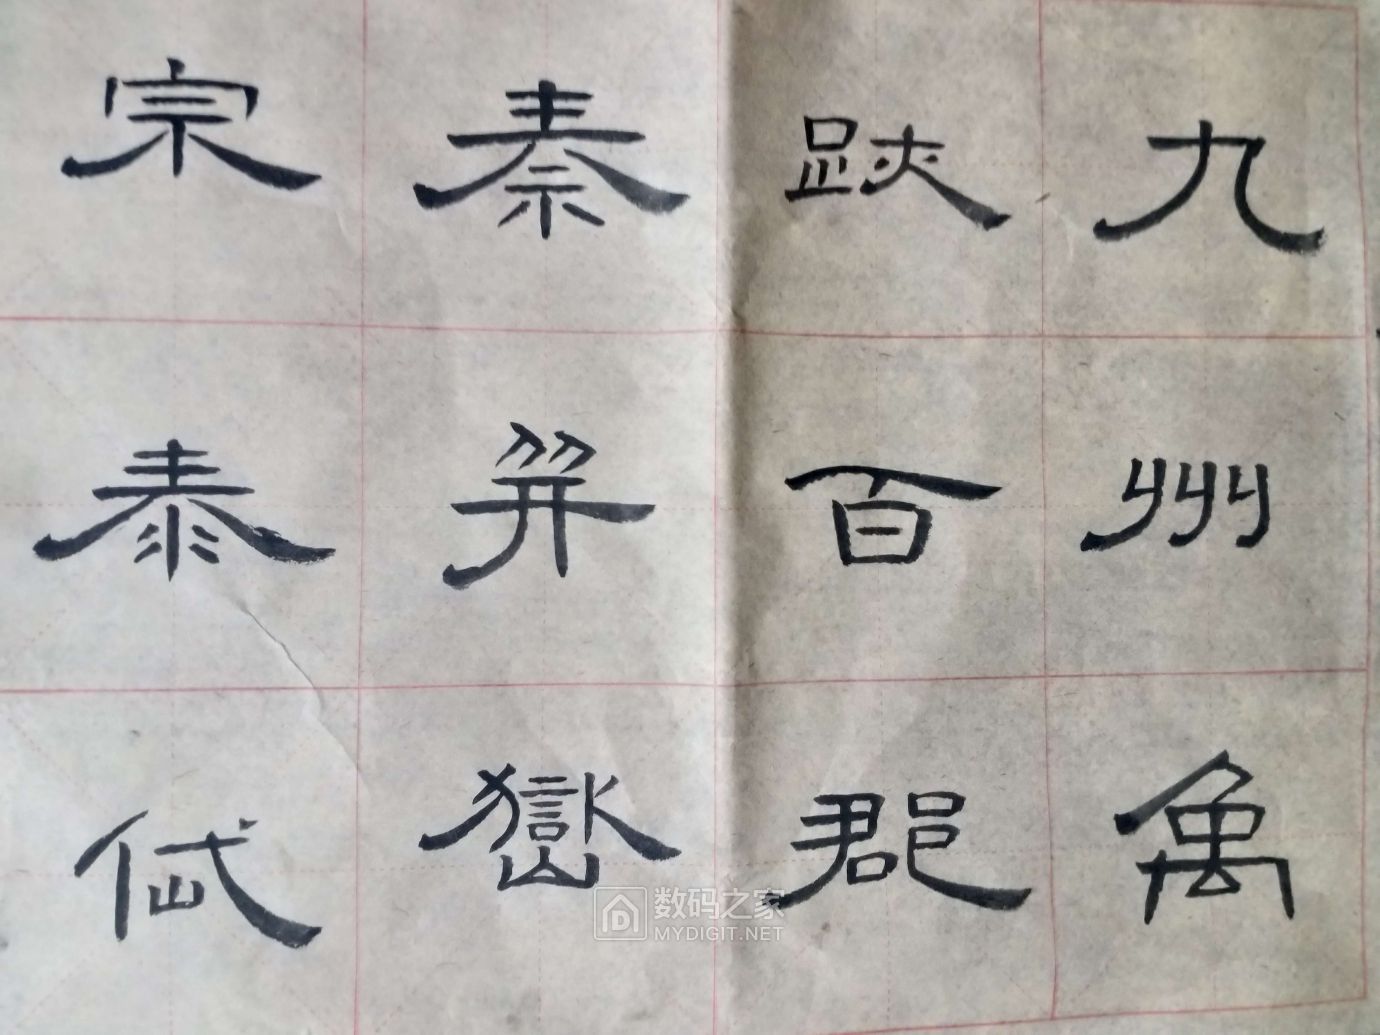 九州禹
跡百郡
秦并嶽
宗泰岱
数码之家
MYDIGIT.NET